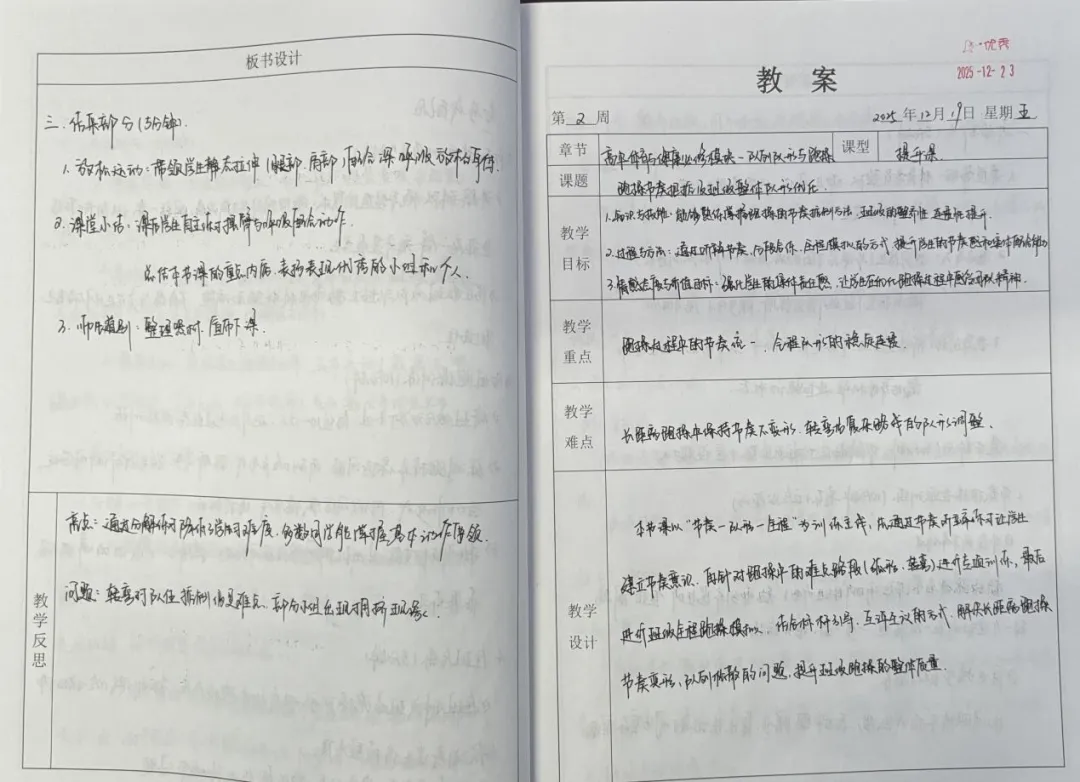 板书设计
三、结束部分(5分钟)
1. 放松运动:带领学生静态拉伸(腿部、肩部),配合深呼吸放松身体.
2. 课堂小结:
总结本节课的重点内容,表扬表现优秀的小组和个人.
3. 师生道别:整理器材,宣布下课.
教学反思
亮点:通过分解练习降低了学习难度,多数同学能掌握基本动作要领.
问题:转弯时队伍控制仍是难点,部分小组出现拥挤现象.
优秀
2025-12-23
教 案
第 2 周
2025年12月19日 星期五
章节
高中体育与健康必修模块一队列队形与跑操
课型
提升课
课题
跑操节奏把控及班级整体队形优化
教学目标
1.知识与技能:能够熟练掌握跑操的节奏控制方法,班级的整齐性、连贯性提升.
2.过程与方法:通过听辨节奏、分段合练、全程模拟的方式,提升学生的节奏感和
3.情感态度与价值目标:强化学生的集体责任感,让学生在 跑操过程中 团队精神.
教学重点
跑操过程中的节奏统一、全程队形的稳定连贯.
教学难点
长距离跑操中保持节奏不变形、转弯与复杂路线的队形调整.
教学设计
本节课以“节奏—队形—全程”为训练主线,先通过节奏 练习让学生
建立节奏意识,再针对跑操中的难点路段( 、转弯)进行专项训练,最后
进行班级全程跑操模拟.结合标杆引导、互评互议的方式,解决长距离跑操
节奏 、队列 的问题,提升班级跑操的整体质量.